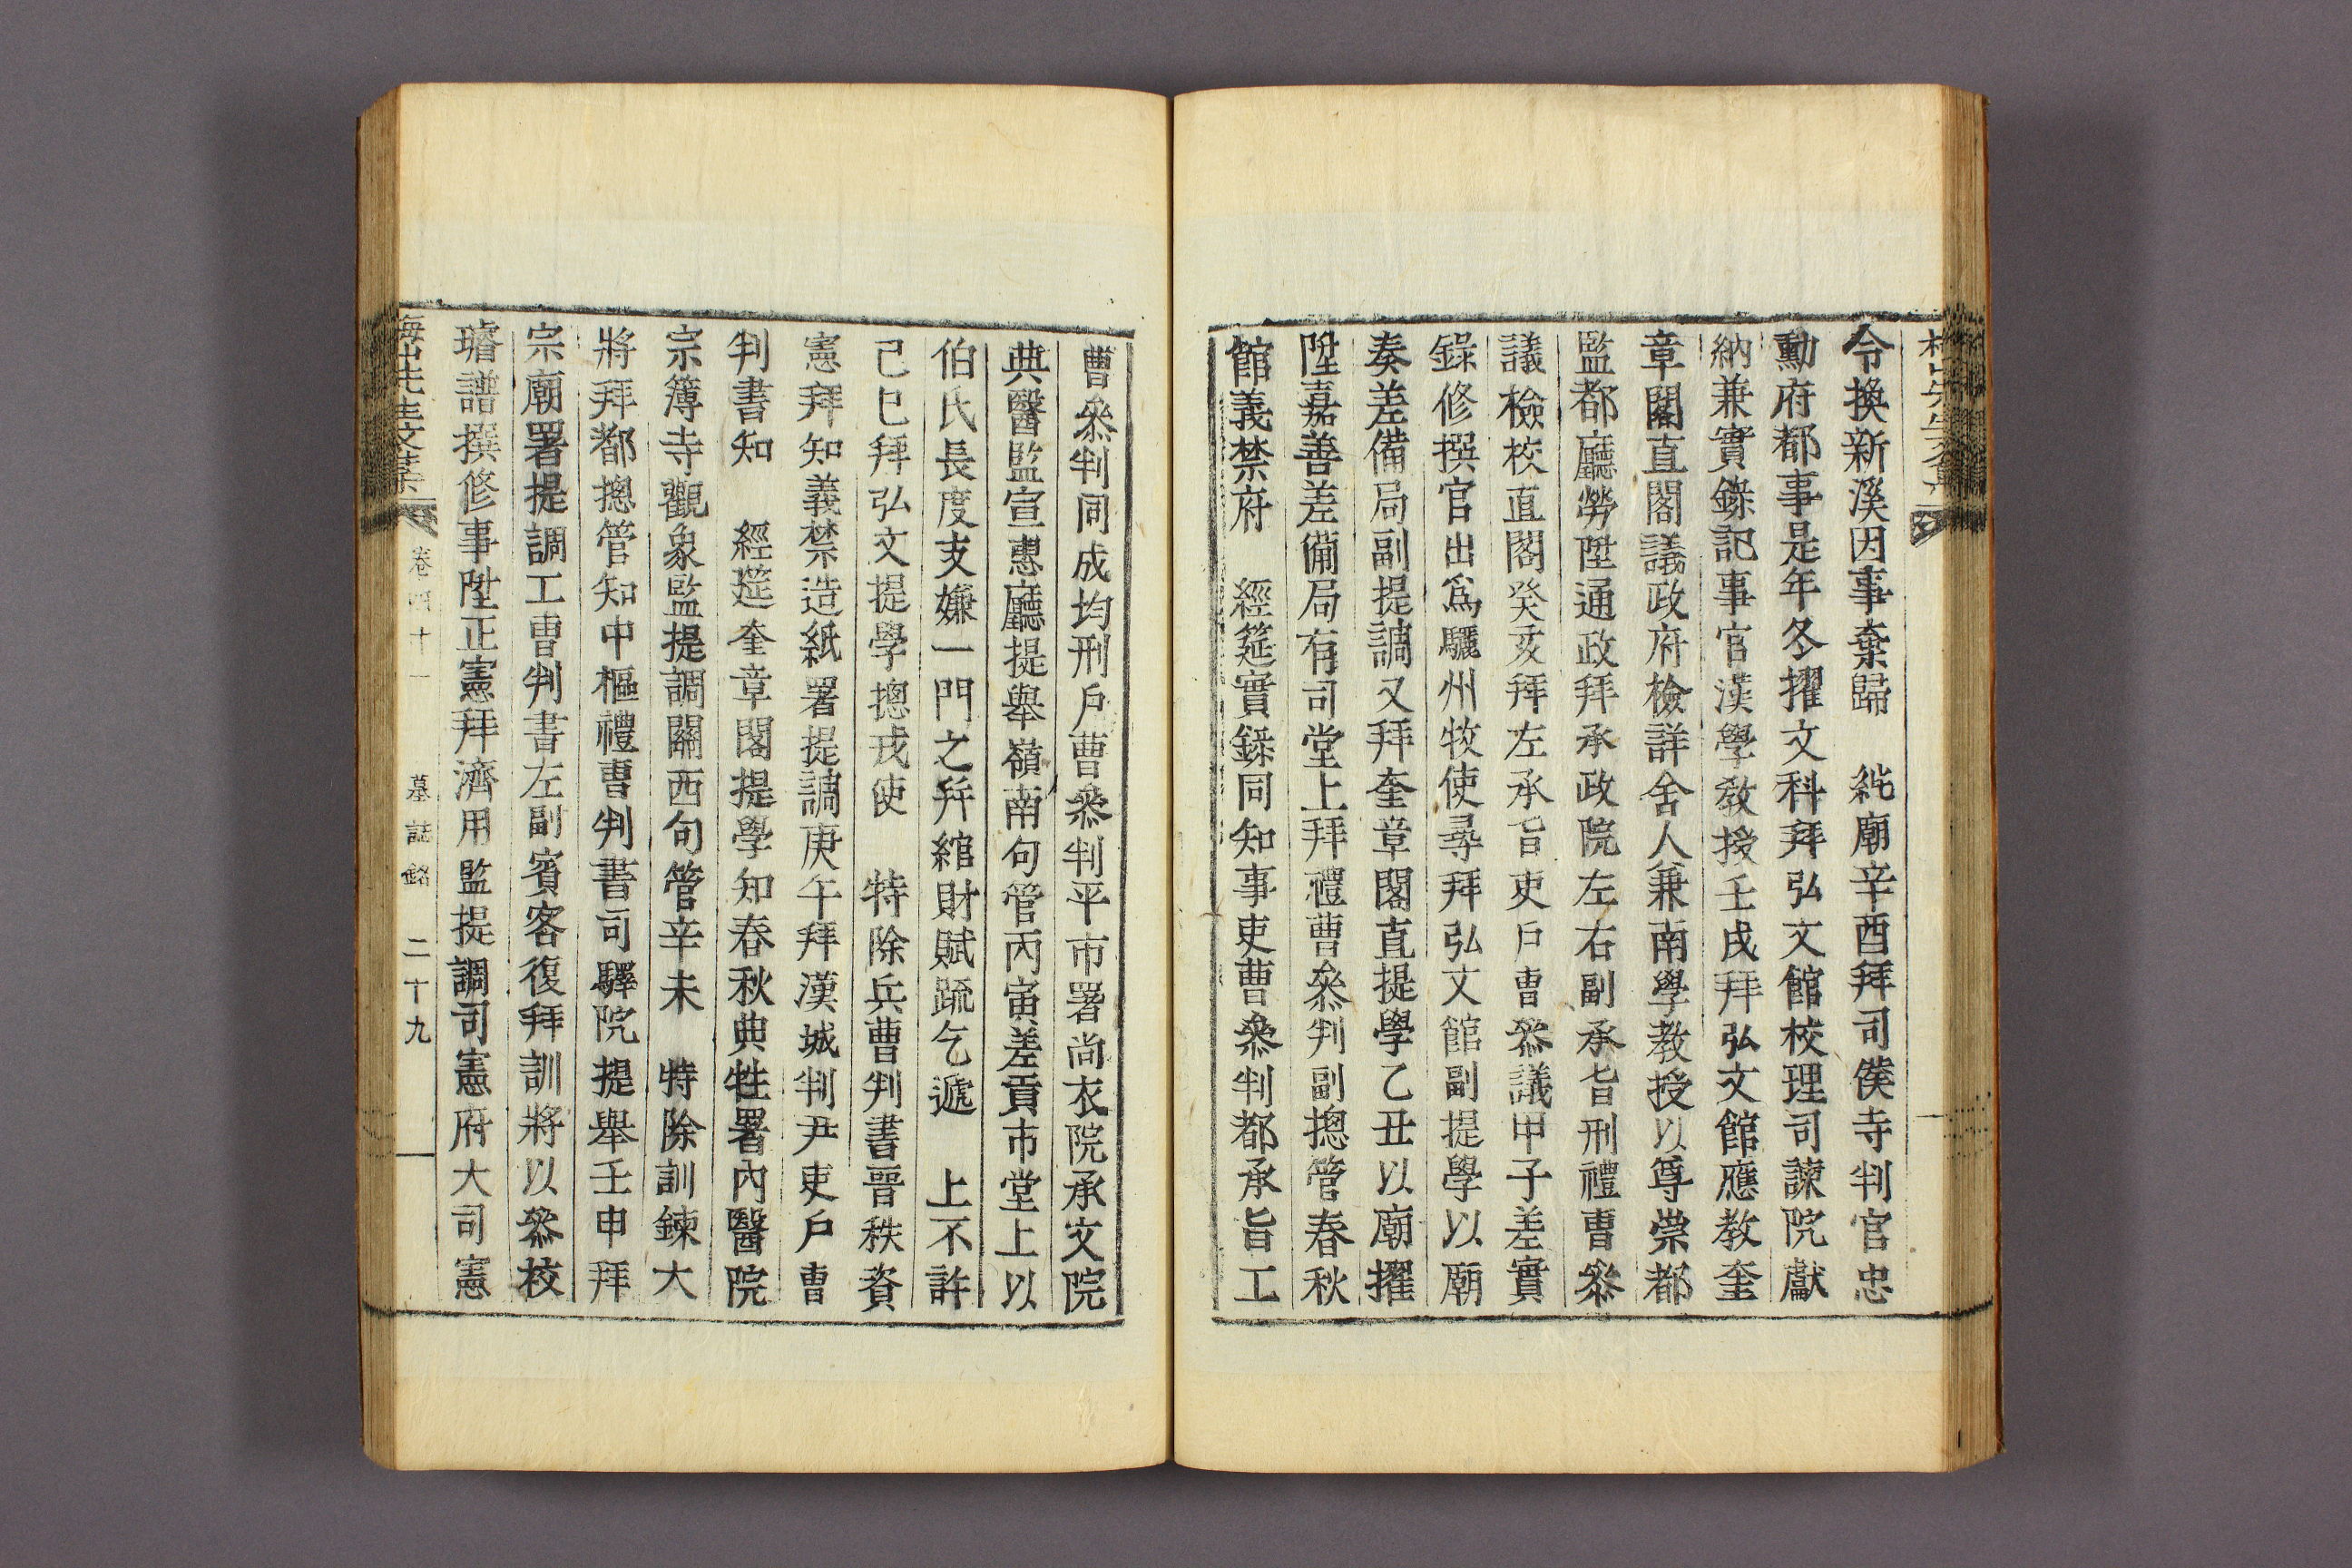 令換新溪因事棄歸 純廟辛酉拜司僕寺判官忠
勳府都事是年冬擢文科拜弘文館校理司諫院獻
納兼實錄記事官漢學敎授壬戌拜弘文館應敎奎
章閣直閣議政府檢詳舍人兼南學敎授以尊崇都
監都廳勞陞通政拜承政院左右副承旨刑禮曹叅
議檢校直閣癸亥拜左承旨吏戶曹叅議甲子差實
錄修撰官出爲驪州牧使尋拜弘文館副提學以廟
奏差備局副提調又拜奎章閣直提學乙丑以廟擢
陞嘉善差備局有司堂上拜禮曹叅判副摠管春秋
館義禁府 經筵實錄同知事吏曹叅判都承旨工
曹叅判同成均刑戶曹叅判平市署尙衣院承文院
典醫監宣惠廳提舉嶺南句管丙寅差貢市堂上以
伯氏長度支嫌一門之幷綰財賦疏乞遞 上不許
己巳拜弘文提學摠戎使 特除兵曹判書晉秩資
憲拜知義禁造紙署提調庚午拜漢城判尹吏戶曹
判書知 經筵奎章閣提學知春秋典牲署內醫院
宗簿寺觀象監提調關西句管辛未 特除訓鍊大
將拜都摠管知中樞禮曹判書司驛院提舉壬申拜
宗廟署提調工曹判書左副賓客復拜訓將以叅校
璿譜撰修事陞正憲拜濟用監提調司憲府大司憲
梅山先生文集 卷四十一 墓誌銘 二十九